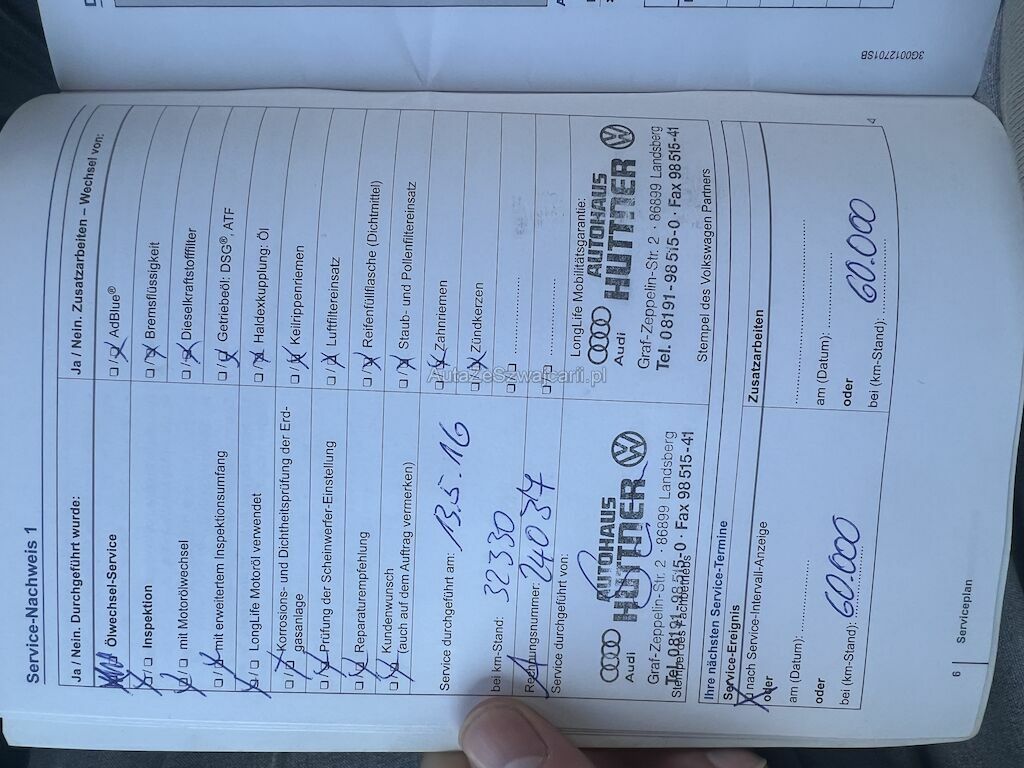 3G0012701SB
Service-Nachweis 1
Ja / Nein. Durchgeführt wurde:
Ölwechsel-Service
Inspektion
mit Motorölwechsel
mit erweitertem Inspektionsumfang
LongLife Motoröl verwendet
Korrosions- und Dichtheitsprüfung der Erd-
gasanlage
Prüfung der Scheinwerfer-Einstellung
Reparaturempfehlung
Kundenwunsch
(auch auf dem Auftrag vermerken)
Service durchgeführt am: 13.5.16
bei km-Stand: 32330
Rechnungsnummer:
Service durchgeführt von:
AUTOHAUS
HUTTNER
Audi
Graf-Zeppelin-Str. 2 · 86899 Landsberg
Tel. 08191-98515-0 · Fax 98515-41
Stempel des Fachbetriebs
Ja / Nein. Zusatzarbeiten – Wechsel von:
AdBlue®
Bremsflüssigkeit
Dieselkraftstofffilter
Getriebeöl: DSG®, ATF
Haldexkupplung: Öl
Keilrippenriemen
Luftfiltereinsatz
Reifenfüllflasche (Dichtmittel)
Staub- und Pollenfiltereinsatz
Zahnriemen
Zündkerzen
LongLife Mobilitätsgarantie:
AUTOHAUS
HUTTNER
Audi
Graf-Zeppelin-Str. 2 · 86899 Landsberg
Tel. 08191-98515-0 · Fax 98515-41
Stempel des Volkswagen Partners
Ihre nächsten Service-Termine
Service-Ereignis
nach Service-Intervall-Anzeige
oder
am (Datum):
oder
bei (km-Stand): 60.000
Zusatzarbeiten
am (Datum):
oder
bei (km-Stand): 60.000
6 Serviceplan
AutaZeSzwajcarii.pl